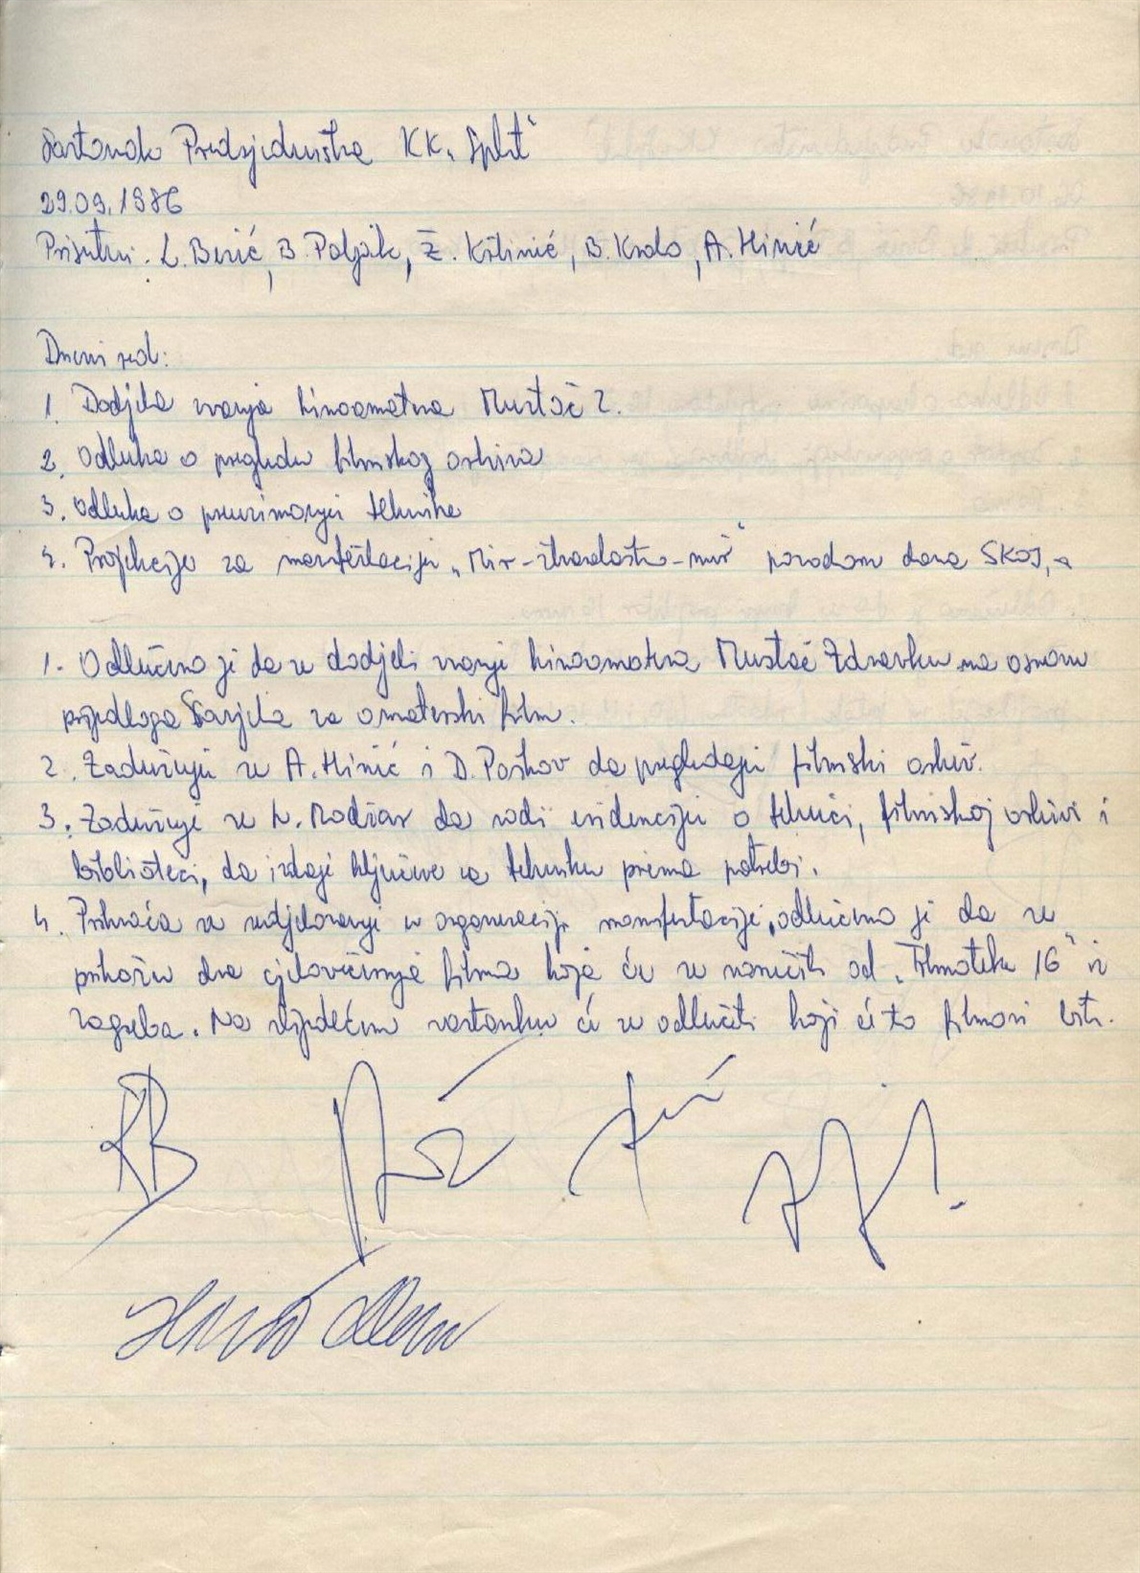 Sastanak Predsjedništva KK „Split"
29.09.1986
Prisutni: L. Berić, B. Poljak, Ž. B. Krolo, A. Hinić
Dnevni red:
1. Dodjela zvanja kinoamatera Mustać Z.
2. Odluka o pregledu filmskog arhiva
3. Odluka o preuzimanju tehnike
4. Projekcije za manifestaciju „Mir - - mir" povodom dana SKOJ-a
1. Odlučeno je da se dodjeli zvanje kinoamatera Mustać Zdravku na osnovu
prijedloga Savjeta za amaterski film.
2. Zadužuju se A. Hinić i D. Poškov da pregledaju filmski arhiv.
3. Zadužuje se L. da vodi evidenciju o tehnici, filmskoj arhivi i
biblioteci, da izdaje ključeve za tehniku prema potrebi.
4. Prihvaća se sudjelovanje u organizaciji manifestacije, odlučeno je da se
prikažu dva cjelovečernja filma koja će se naručiti od „Filmoteke 16" iz
Zagreba. Na slijedećem sastanku će se odlučiti koji će to filmovi biti.